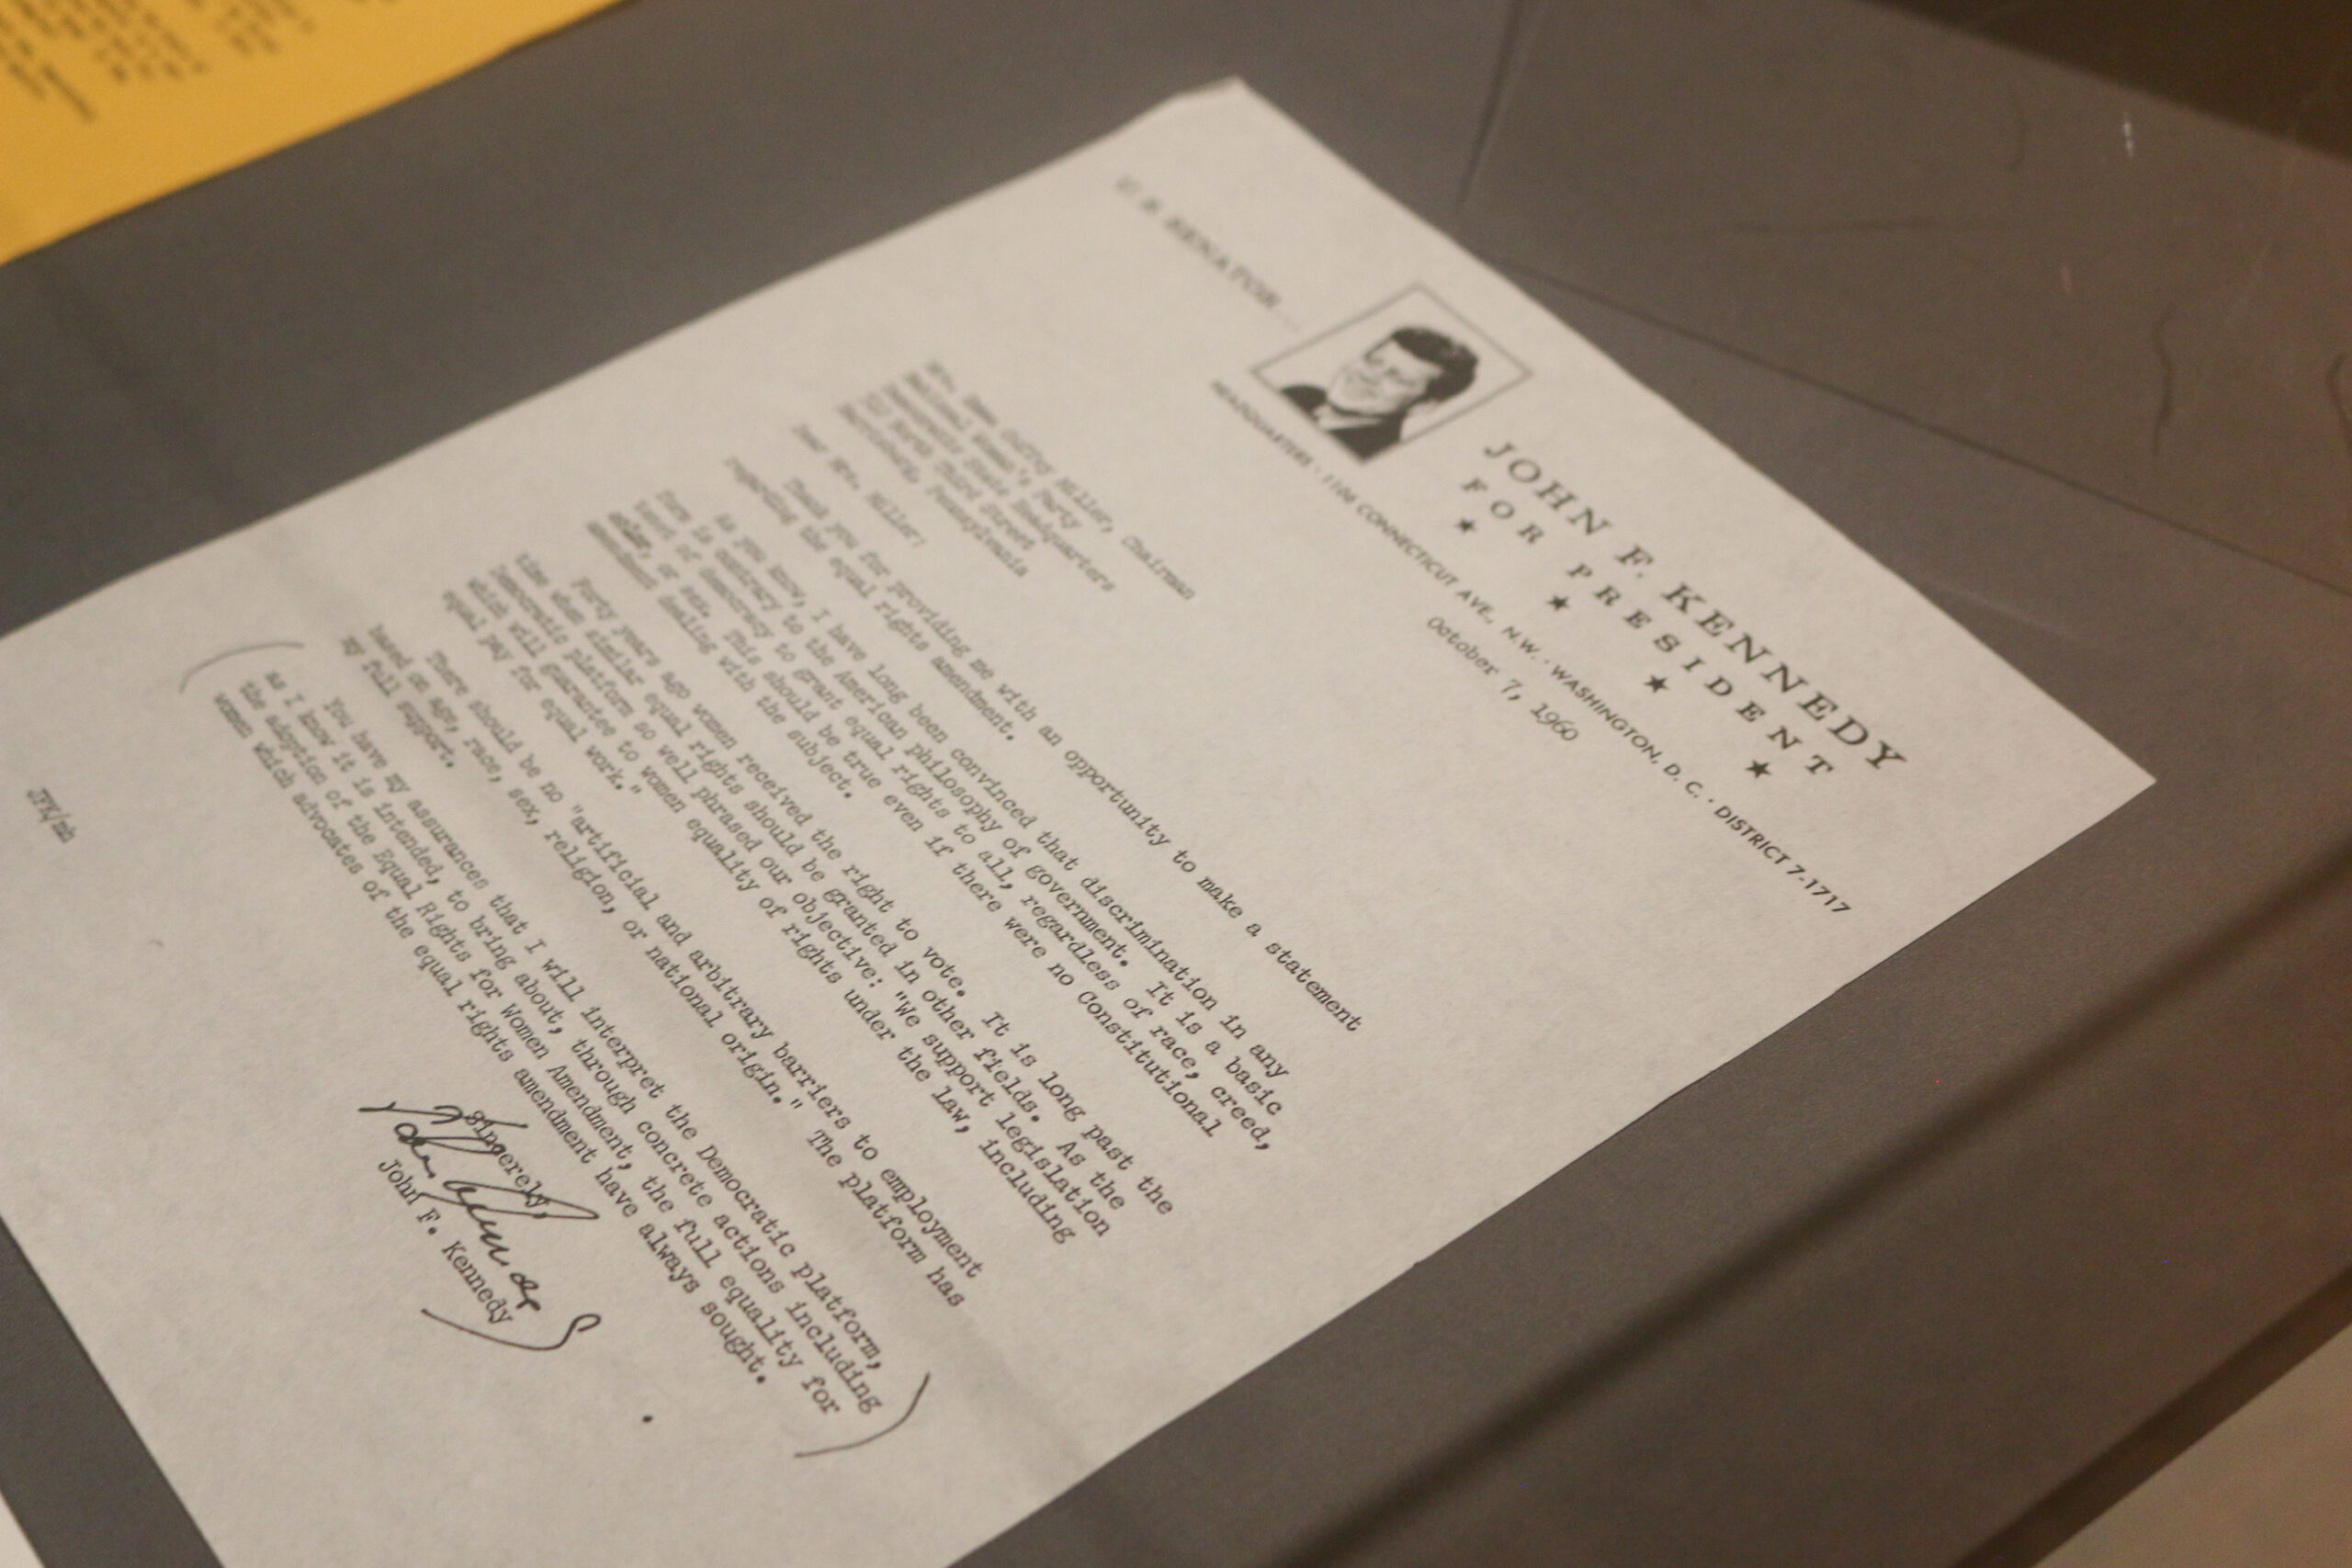 U. S. SENATOR
JOHN F. KENNEDY
FOR PRESIDENT
HEADQUARTERS · 1106 CONNECTICUT AVE., N.W. · WASHINGTON, D. C. · DISTRICT 7-1717
October 7, 1960
Mrs. Emma Guffey Miller, Chairman
National Woman's Party
Democratic State Headquarters
Third Street
Harrisburg, Pennsylvania
Dear Mrs. Miller:
Thank you for providing me with an opportunity to make a statement
regarding the equal rights amendment.
As you know, I have long been convinced that discrimination in any
form is contrary to the American philosophy of government. It is a basic
tenet of democracy to grant equal rights to all, regardless of race, creed,
color, or sex. This should be true even if there were no Constitutional
amendment dealing with the subject.
Forty years ago women received the right to vote. It is long past the
time when similar equal rights should be granted in other fields. As the
Democratic platform so well phrased our objective: "We support legislation
which will guarantee to women equality of rights under the law, including
equal pay for equal work."
There should be no "artificial and arbitrary barriers to employment
based on age, race, sex, religion, or national origin." The platform has
my full support.
You have my assurances that I will interpret the Democratic platform,
as I know it is intended, to bring about, through concrete actions including
the adoption of the Equal Rights for Women Amendment, the full equality for
women which advocates of the equal rights amendment have always sought.
Sincerely,
John F. Kennedy
JFK/mb